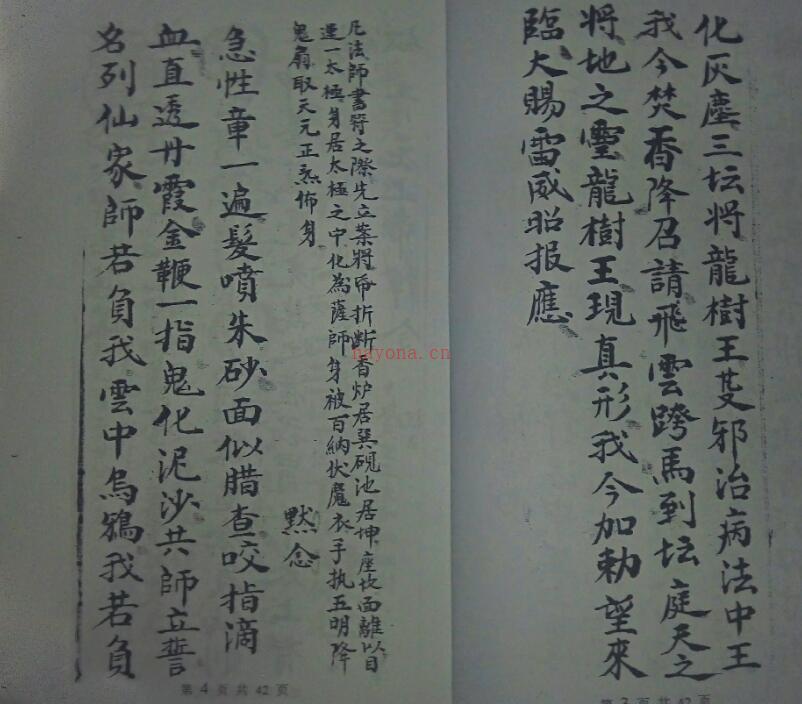 化灰塵三坛将龍樹王芟邪治病法中王
我今焚香降召請飛雲跨馬到坛庭天之
将地之靈龍樹王現真形我今加勅望來
臨大賜雷威昭报應
第 3 页 共 42 页
凡法師書符之際先立案将帋折断香炉居巽硯池居坤座坎面離以目
運一太極身居太極之中化為薩師身被百納伏魔衣手执五明降
鬼扇取天元正炁佈身
默念
急性章一遍髮噴朱砂面似腊查咬指滴
血直透丹霞金鞭一指鬼化泥沙共師立誓
名列仙家師若負我雲中烏鴉我若負
第 4 页 共 42 页
hayona.cn